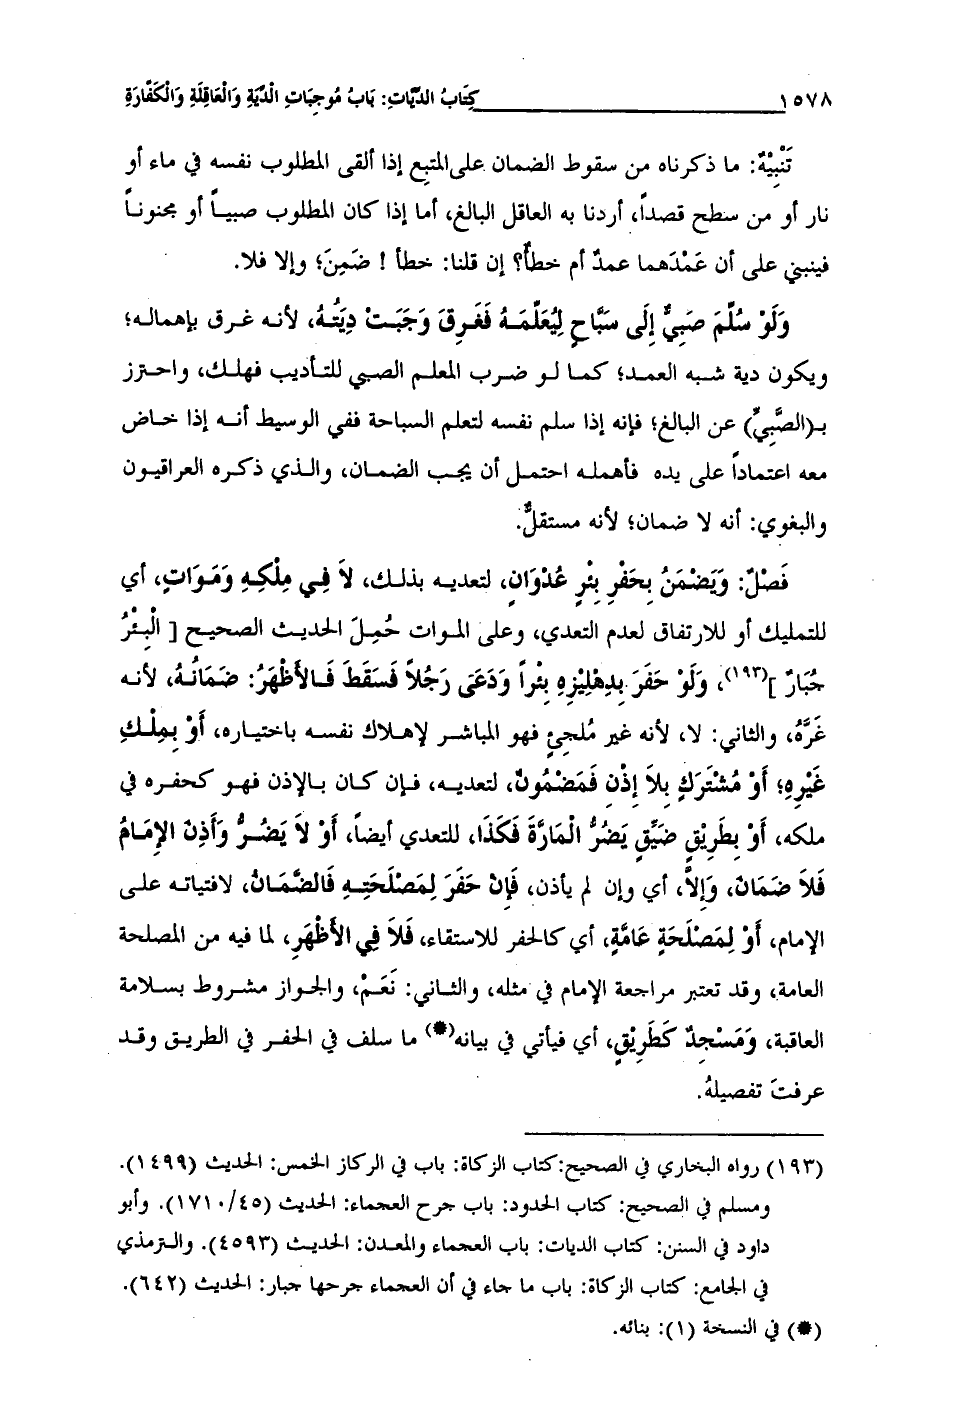 ١٥٧٨ كِتَابُ الدِّيَّاتِ: بَابُ مُوجِبَاتِ الْدِّيَةِ وَالْعَاقِلَةِ وَالْكَفَّارَةِ
تَنْبِيْهٌ: ما ذكرناه من سقوط الضمان على المتبع إذا ألقى المطلوب نفسه في ماء أو
نار أو من سطح قصداً، أردنا به العاقل البالغ، أما إذا كان المطلوب صبياً أو مجنوناً
فينبني على أن عَمْدَهما عمدٌ أم خطأٌ؟ إن قلنا: خطأ ! ضَمِنَ؛ وإلا فلا.
وَلَوْ سُلِّمَ صَبِيٌّ إِلَى سَبَّاحٍ لِيُعَلِّمَهُ فَغَرِقَ وَجَبَتْ دِيَتُهُ، لأنه غرق بإهماله؛
ويكون دية شبه العمد؛ كما لو ضرب المعلم الصبي للتأديب فهلك، واحترز
بـ(الصَّبِيِّ) عن البالغ؛ فإنه إذا سلم نفسه لتعلم السباحة ففي الوسيط أنه إذا خاض
معه اعتماداً على يده فأهمله احتمل أن يجب الضمان، والذي ذكره العراقيون
والبغوي: أنه لا ضمان؛ لأنه مستقلٌّ.
فَصْلٌ: وَيَضْمَنُ بِحَفْرِ بِئْرٍ عُدْوَانٍ، لتعديه بذلك، لاَ فِي مِلْكِهِ وَمَوَاتٍ، أي
للتمليك أو للارتفاق لعدم التعدي، وعلى الموات حُمِلَ الحديث الصحيح [ الْبِئْرُ
جُبَارٌ ](١٩٣)، وَلَوْ حَفَرَ بِدِهْلِيزِهِ بِئْراً وَدَعَى رَجُلاً فَسَقَطَ فَالأَظْهَرُ: ضَمَانُهُ، لأنه
غَرَّهُ، والثاني: لا، لأنه غير مُلجئ فهو المباشر لإهلاك نفسه باختياره، أَوْ بِمِلْكِ
غَيْرِهِ؛ أَوْ مُشْتَرَكٍ بِلاَ إِذْنٍ فَمَضْمُونٌ، لتعديه، فإن كان بالإذن فهو كحفره في
ملكه، أَوْ بِطَرِيْقٍ ضَيِّقٍ يَضُرُّ الْمَارَّةَ فَكَذَا، للتعدي أيضاً، أَوْ لاَ يَضُرُّ وَأَذِنَ الإِمَامُ
فَلاَ ضَمَانَ، وَإِلاَّ، أي وإن لم يأذن، فَإِنْ حَفَرَ لِمَصْلَحَتِهِ فَالضَّمَانُ، لافتياته على
الإمام، أَوْ لِمَصْلَحَةٍ عَامَّةٍ، أي كالحفر للاستقاء، فَلاَ فِي الأَظْهَرِ، لما فيه من المصلحة
العامة، وقد تعتبر مراجعة الإمام في مثله، والثاني: نَعَمْ، والجواز مشروط بسلامة
العاقبة، وَمَسْجِدٌ كَطَرِيْقٍ، أي فيأتي في بيانه(*) ما سلف في الحفر في الطريق وقد
عرفتَ تفصيلهُ.
(١٩٣) رواه البخاري في الصحيح:كتاب الزكاة: باب في الركاز الخمس: الحديث (١٤٩٩).
ومسلم في الصحيح: كتاب الحدود: باب جرح العجماء: الحديث (١٧١٠/٤٥). وأبو
داود في السنن: كتاب الديات: باب العجماء والمعدن: الحديث (٤٥٩٣). والترمذي
في الجامع: كتاب الزكاة: باب ما جاء في أن العجماء جرحها جبار: الحديث (٦٤٢).
(*) في النسخة (١): بنائه.